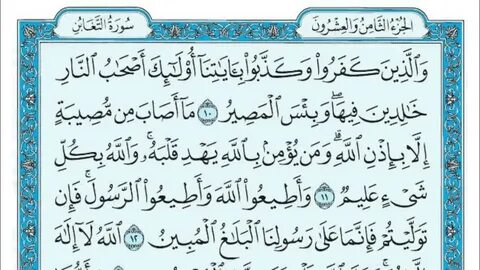 الجزء الثامن والعشرون
سورة التغابن
وَالَّذِينَ كَفَرُوا۟ وَكَذَّبُوا۟ بِـَٔايَـٰتِنَآ أُو۟لَـٰٓئِكَ أَصْحَـٰبُ النَّارِ
خَـٰلِدِينَ فِيهَا ۖ وَبِئْسَ الْمَصِيرُ ١٠ مَآ أَصَابَ مِن مُّصِيبَةٍ
إِلَّا بِإِذْنِ اللَّهِ ۗ وَمَن يُؤْمِنۢ بِاللَّهِ يَهْدِ قَلْبَهُۥ ۚ وَاللَّهُ بِكُلِّ
شَىْءٍ عَلِيمٌ ١١ وَأَطِيعُوا۟ اللَّهَ وَأَطِيعُوا۟ الرَّسُولَ ۚ فَإِن
تَوَلَّيْتُمْ فَإِنَّمَا عَلَىٰ رَسُولِنَا الْبَلَـٰغُ الْمُبِينُ ١٢ اللَّهُ لَآ إِلَـٰهَ